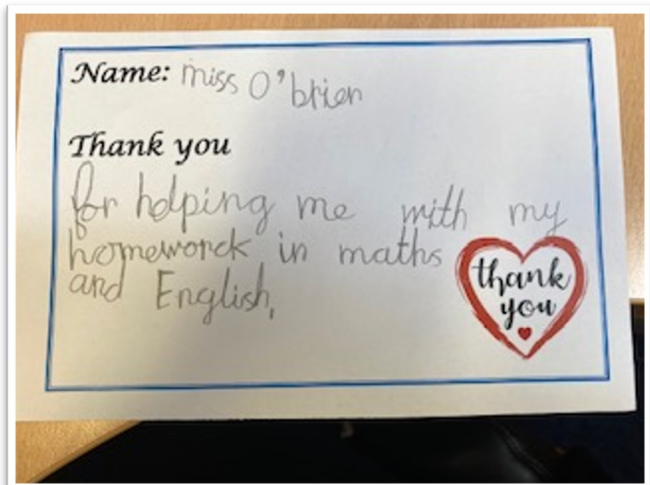 Name: miss O'brien
Thank you
for helping me with my
homeworck in maths
and English,
thank
you